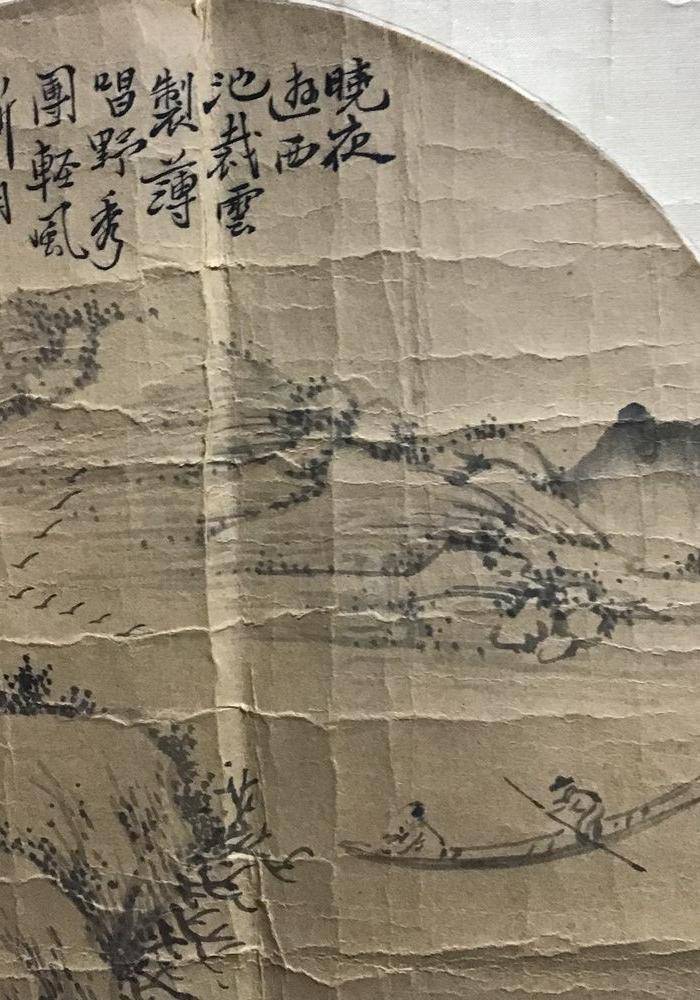 曉夜
遊西
池裁雲
製薄
唱野秀
團輕風